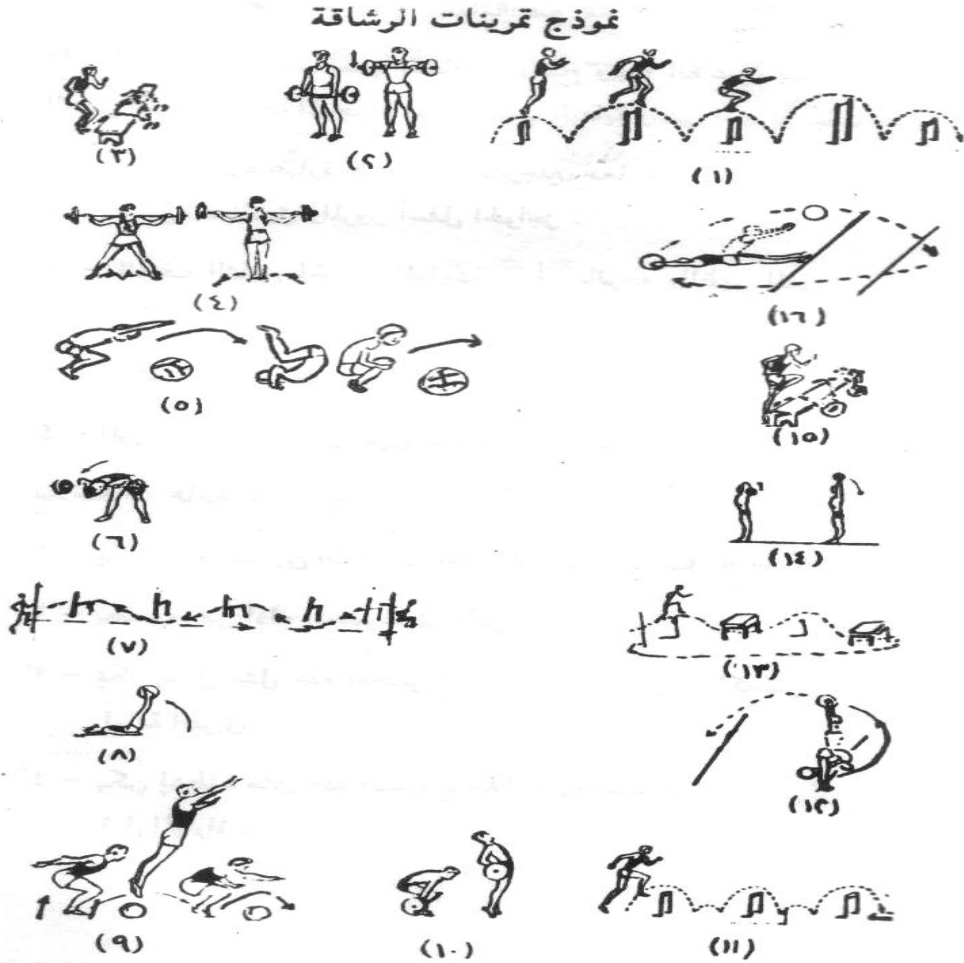 نموذج تمرينات الرشاقة
(١)
(٢)
(٣)
(٤)
(١٦)
(٥)
(١٥)
(٦)
(١٤)
(٧)
(١٣)
(٨)
(١٢)
(٩)
(١٠)
(١١)